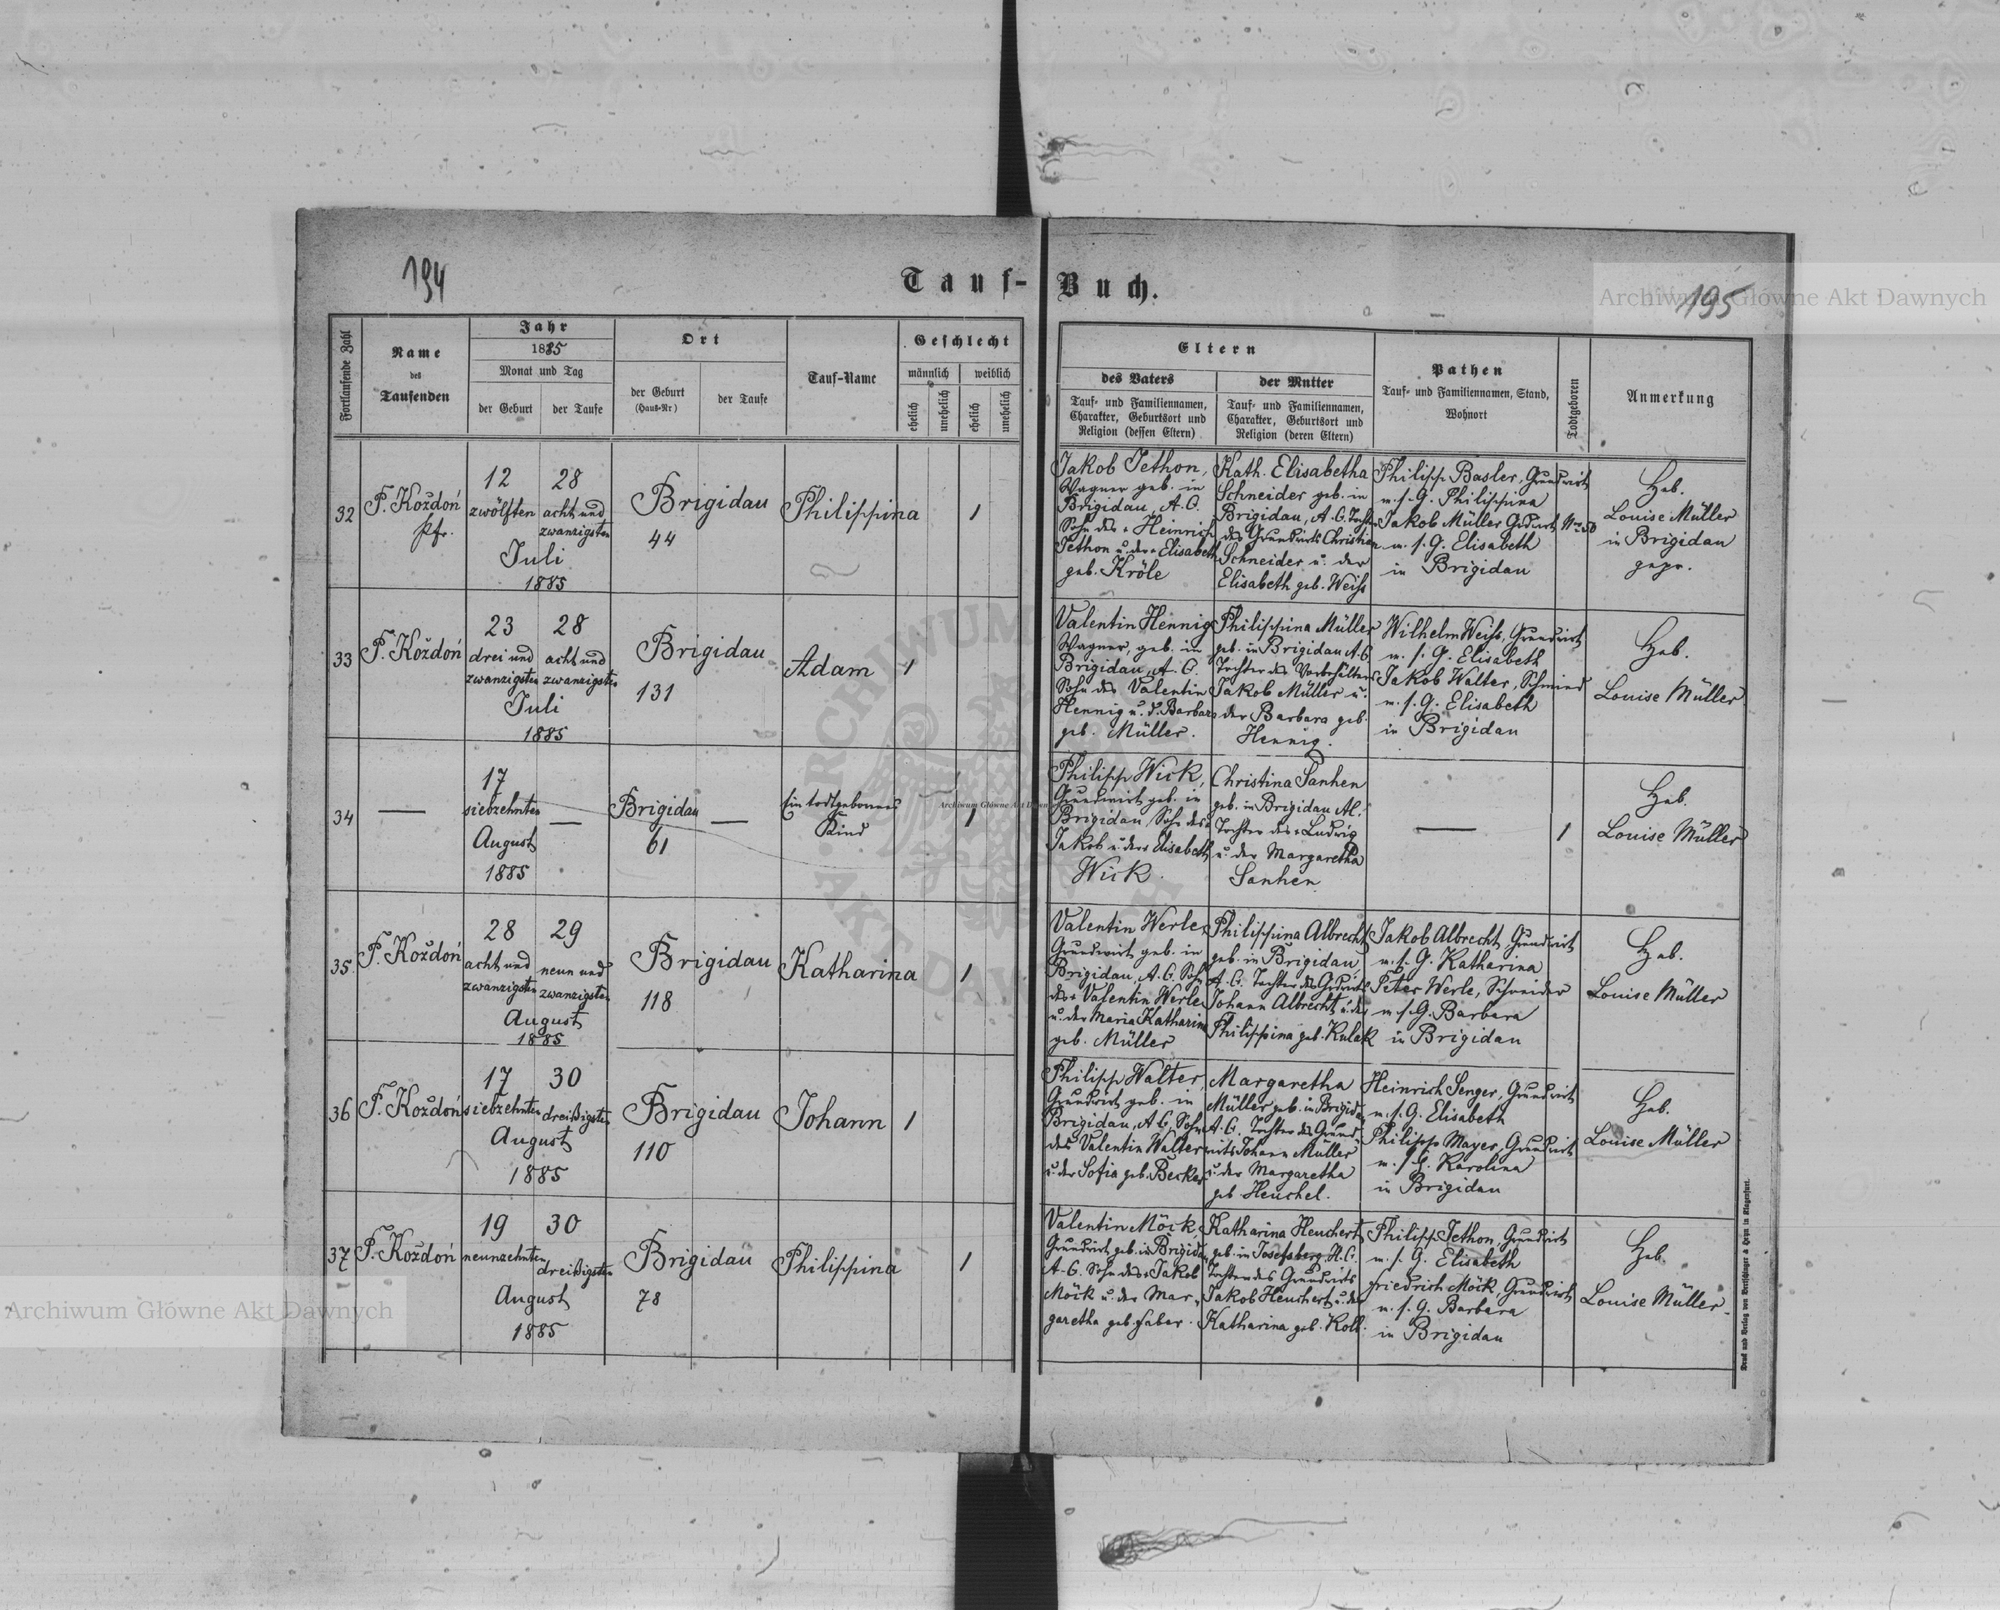 194
Tauf-Buch.
195
Archiwum Główne Akt Dawnych
Fortlaufende Zahl
Name
des
Taufenden
Jahr
1885
Monat und Tag
der Geburt
der Taufe
Ort
der Geburt
(Haus-Nr)
der Taufe
Tauf-Name
Geschlecht
männlich
weiblich
ehelich
unehelich
ehelich
unehelich
Eltern
des Vaters
Tauf- und Familiennamen,
Charakter, Geburtsort und
Religion (dessen Eltern)
der Mutter
Tauf- und Familiennamen,
Charakter, Geburtsort und
Religion (deren Eltern)
Pathen
Tauf- und Familiennamen, Stand,
Wohnort
Todtgeboren
Anmerkung
32
F. Koždoń
Pfr.
12
zwölften
28
acht und
zwanzigsten
Juli
1885
Brigidau
44
Philippina
1
Jakob Jethon,
Wagner geb. in
Brigidau, A. C.
Sohn des + Heinrich
Jethon u. der + Elisabeth
geb. Kröle
Kath. Elisabetha
Schneider geb. in
Brigidau, A. C. Tochter
des Grundwirts Christian
Schneider u. der
Elisabeth geb. Weiss
Philipp Basler, Grundwirt
m. s. G. Philippina
Jakob Müller Grdwirt Nr 50
m. s. G. Elisabeth
in Brigidau
Heb.
Louise Müller
in Brigidau
gepr.
33
F. Koždoń
23
drei und
zwanzigsten
28
acht und
zwanzigsten
Juli
1885
Brigidau
131
Adam
1
Valentin Hennig
Wagner, geb. in
Brigidau, A. C.
Sohn des Valentin
Hennig u. d. Barbara
geb. Müller.
Philippina Müller
geb. in Brigidau A. C.
Tochter des Vorbehälters
Jakob Müller u.
der Barbara geb.
Hennig.
Wilhelm Weiss, Grundwirt
m. s. G. Elisabeth
Jakob Walter, Schmied
m. s. G. Elisabeth
in Brigidau
Heb.
Louise Müller
34
17
siebzehnten
August
1885
Brigidau
61
Ein todtgebornes
Kind
1
Philipp Wick,
Grundwirt geb. in
Brigidau, Sohn des +
Jakob u. der + Elisabeth
Wick.
Christina Sanhen
geb. in Brigidau A. C.
Tochter des + Ludwig
u. der Margaretha
Sanhen.
1
Heb.
Louise Müller
35
F. Koždoń
28
acht und
zwanzigsten
29
neun und
zwanzigsten
August
1885
Brigidau
118
Katharina
1
Valentin Werle
Grundwirt geb. in
Brigidau, A. C. Sohn
des + Valentin Werle
u. der Maria Katharina
geb. Müller
Philippina Albrecht
geb. in Brigidau
A. C. Tochter des Grdwirts
Johann Albrecht u. der
Philippina geb. Kulak
Jakob Albrecht, Grundwirt
m. s. G. Katharina
Peter Werle, Schneider
m. s. G. Barbara
in Brigidau
Heb.
Louise Müller
36
F. Koždoń
17
siebzehnten
30
dreißigsten
August
1885
Brigidau
110
Johann
1
Philipp Walter
Grundwirt geb. in
Brigidau, A. C. Sohn
des Valentin Walter
u. der Sofia geb. Becker
Margaretha
Müller geb. in Brigidau
A. C. Tochter des Grund-
wirts Johann Müller
u. der Margaretha
geb. Heuchel.
Heinrich Senger, Grundwirt
m. s. G. Elisabeth
Philipp Mayer, Grundwirt
m. s. G. Karolina
in Brigidau
Heb.
Louise Müller
37
F. Koždoń
19
neunzehnten
30
dreißigsten
August
1885
Brigidau
78
Philippina
1
Valentin Möck,
Grundwirt geb. in Brigidau
A. C. Sohn des + Jakob
Möck u. der Mar-
garetha geb. Faber.
Katharina Heuchert
geb. in Josefsberg H. C.
Tochter des Grundwirts
Jakob Heuchert u. der
Katharina geb. Koll.
Philipp Jethon, Grundwirt
m. s. G. Elisabeth
Friedrich Möck, Grundwirt
m. s. G. Barbara
in Brigidau
Heb.
Louise Müller
Archiwum Główne Akt Dawnych